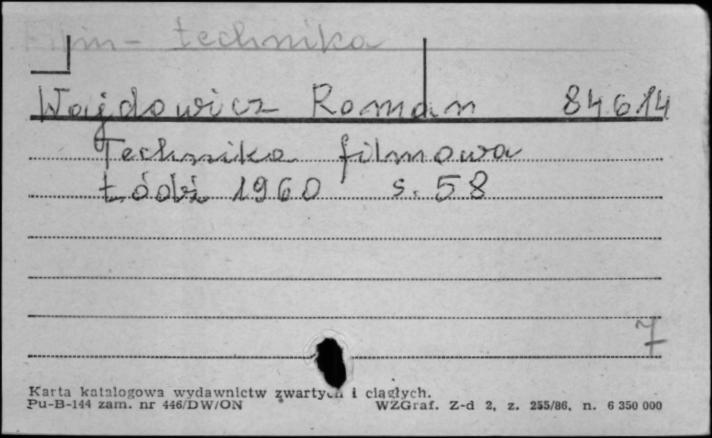 Film - technika
Wajdowicz Roman 84614
Technika filmowa
Łódź 1960 s. 58
7
Karta katalogowa wydawnictw zwartych i ciągłych.
Pu-B-144 zam. nr 446/DW/ON WZGraf. Z-d 2, z. 255/86, n. 6 350 000